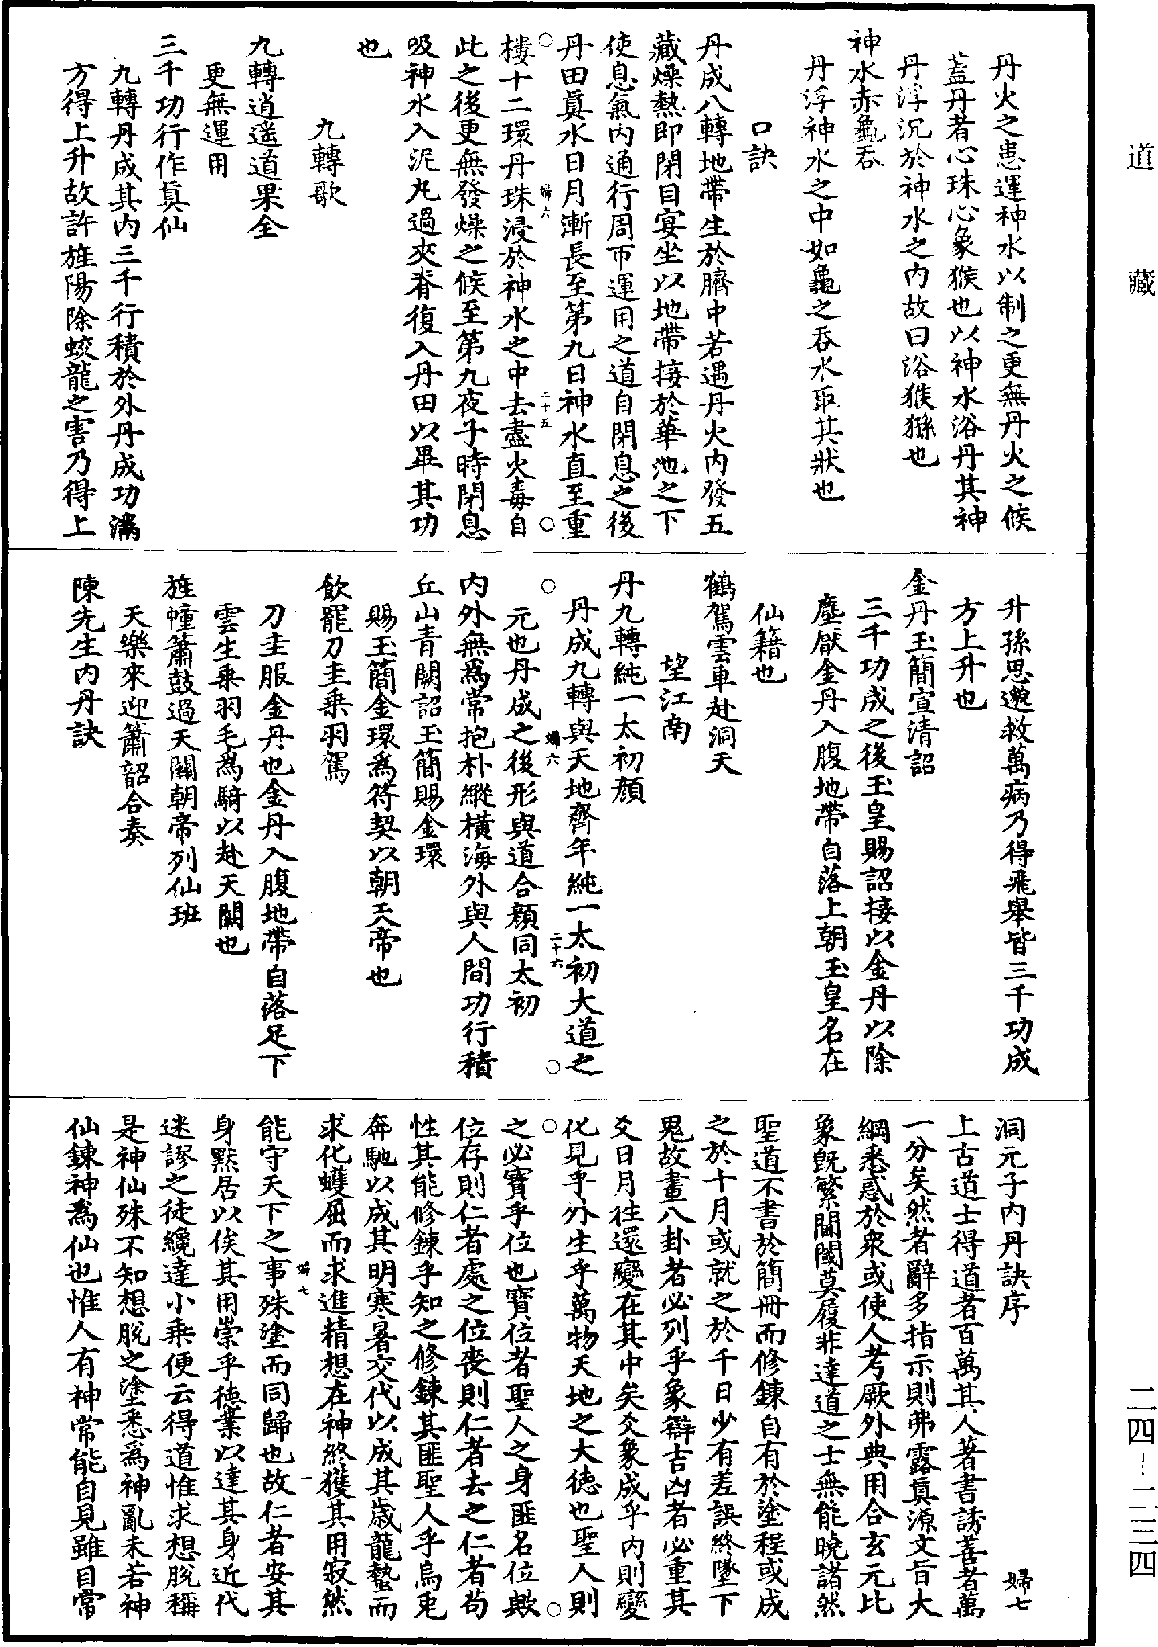 道藏
丹火之患運神水以制之更無丹火之候
蓋丹者心珠心象猴也以神水浴丹其神
丹浮沉於神水之内故曰浴猴猻也
神水赤龜吞
丹浮神水之中如龜之吞水取其狀也
口訣
丹成八轉地帶生於臍中若遇丹火内發五
藏燥熱即閉目宴坐以地帶接於華池之下
使息氣内通行周帀運用之道自閉息之後
丹田眞水日月漸長至第九日神水直至重
婦六 二十五
樓十二環丹珠浸於神水之中去盡火毒自
此之後更無發燥之候至第九夜子時閉息
吸神水入泥丸過夾脊復入丹田以畢其功
也
九轉歌
九轉逍遥道果全
更無運用
三千功行作眞仙
九轉丹成其内三千行積於外丹成功滿
方得上升故許旌陽除蛟龍之害乃得上
升孫思邈救萬病乃得飛舉皆三千功成
方上升也
金丹玉簡宣清詔
三千功成之後玉皇賜詔接以金丹以除
塵厭金丹入腹地帶自落上朝玉皇名在
仙籍也
鶴駕雲車赴洞天
望江南
丹九轉純一太初顏
丹成九轉與天地齊年純一太初大道之
婦六 二十六
元也丹成之後形與道合顏同太初
内外無爲常抱朴縱橫海外與人間功行積
丘山青闕詔玉簡賜金環
賜玉簡金環爲符契以朝天帝也
飲罷刀圭乗羽駕
刀圭服金丹也金丹入腹地帶自落足下
雲生乗羽毛爲騎以赴天闕也
旌幢簫鼓過天關朝帝列仙班
天樂來迎簫韶合奏
陳先生内丹訣
婦七
洞元子内丹訣序
上古道士得道者百萬其人著書誘善者萬
一分矣然者辭多指示則弗露眞源文旨大
綱悉惑於衆或使人考厥外典用合玄元比
象既繁閫閾莫履非達道之士無能曉諸然
聖道不書於簡冊而修鍊自有於塗程或成
之於十月或就之於千日少有差誤終墜下
鬼故畫八卦者必列乎象辯吉凶者必重其
爻日月往還變在其中矣爻象成乎内則變
化見乎外生乎萬物天地之大德也聖人則
之必寳乎位也寳位者聖人之身匪名位歟
位存則仁者處之位喪則仁者去之仁者苟
性其能修鍊乎知之修鍊其匪聖人乎烏兎
奔馳以成其明寒暑交代以成其歲龍蟄而
求化蠖屈而求進精想在神終獲其用寂然
婦七 一
能守天下之事殊塗而同歸也故仁者安其
身黙居以俟其用崇乎德業以達其身近代
迷謬之徒纔達小乗便云得道惟求想脫稱
是神仙殊不知想脫之塗悉爲神亂未若神
仙鍊神爲仙也惟人有神常能自見雖目常
二四-二三四